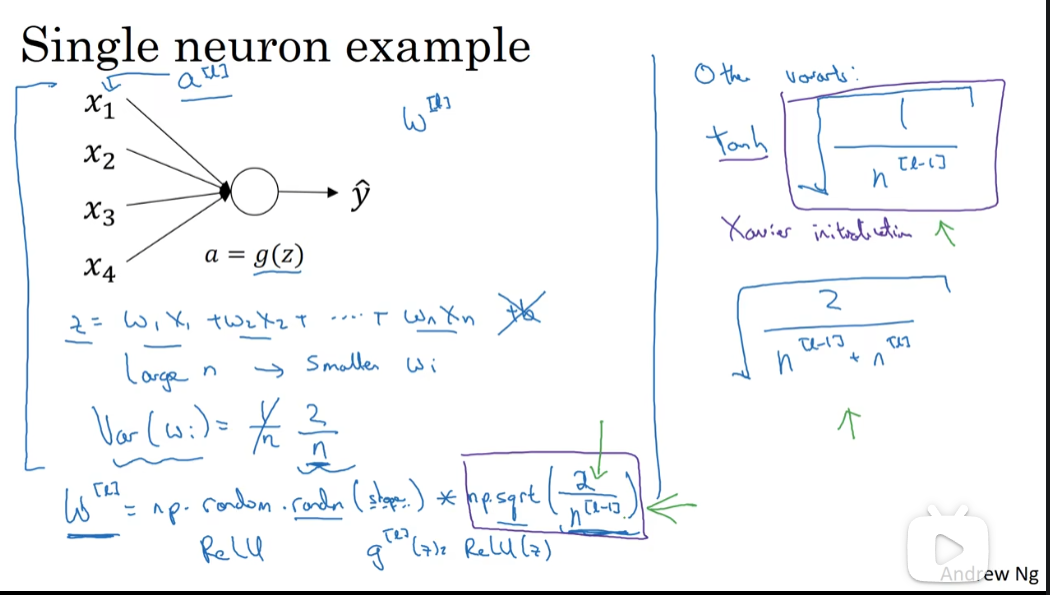 Single neuron example
a^[l]
x₁
x₂
x₃
x₄
w^[l]
ŷ
a = g(z)
z = w₁x₁ + w₂x₂ + ..... + wₙxₙ
Large n → Smaller wᵢ
Var(wᵢ) = 1/n 2/n
W^[l] = np.random.randn(shape) * np.sqrt(2/n^[l-1])
ReLU g^[l](z) = ReLU(z)
Other variants:
tanh √(1/n^[l-1])
Xavier initialization ↑
√(2/(n^[l-1] + n^[l]))
↑
Andrew Ng